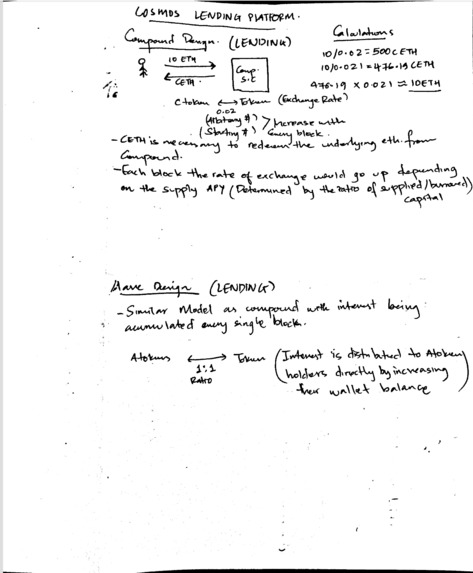 COSMOS LENDING PLATFORM.
Compound Design. (LENDING)
10 ETH
CETH.
Comp.
S.C
Calculations
10/0.02 = 500 CETH
10/0.021 = 476.19 CETH
476.19 x 0.021 ≈ 10ETH
Ctoken ⟷ Token (Exchange Rate)
0.02
(Arbitrary #) > Increase with
(Starting #) every block.
- CETH is necessary to redeem the underlying eth. from
Compound.
- Each block the rate of exchange would go up depending
on the supply APY (Determined by the ratio of supplied/burrowed)
capital
Aave Design (LENDING)
- Similar Model as compound with interest being
acumulated every single block.
Atokens ⟷ Token (Interest is distributed to Atoken
1:1
Ratio
holders directly by increasing
their wallet balance)